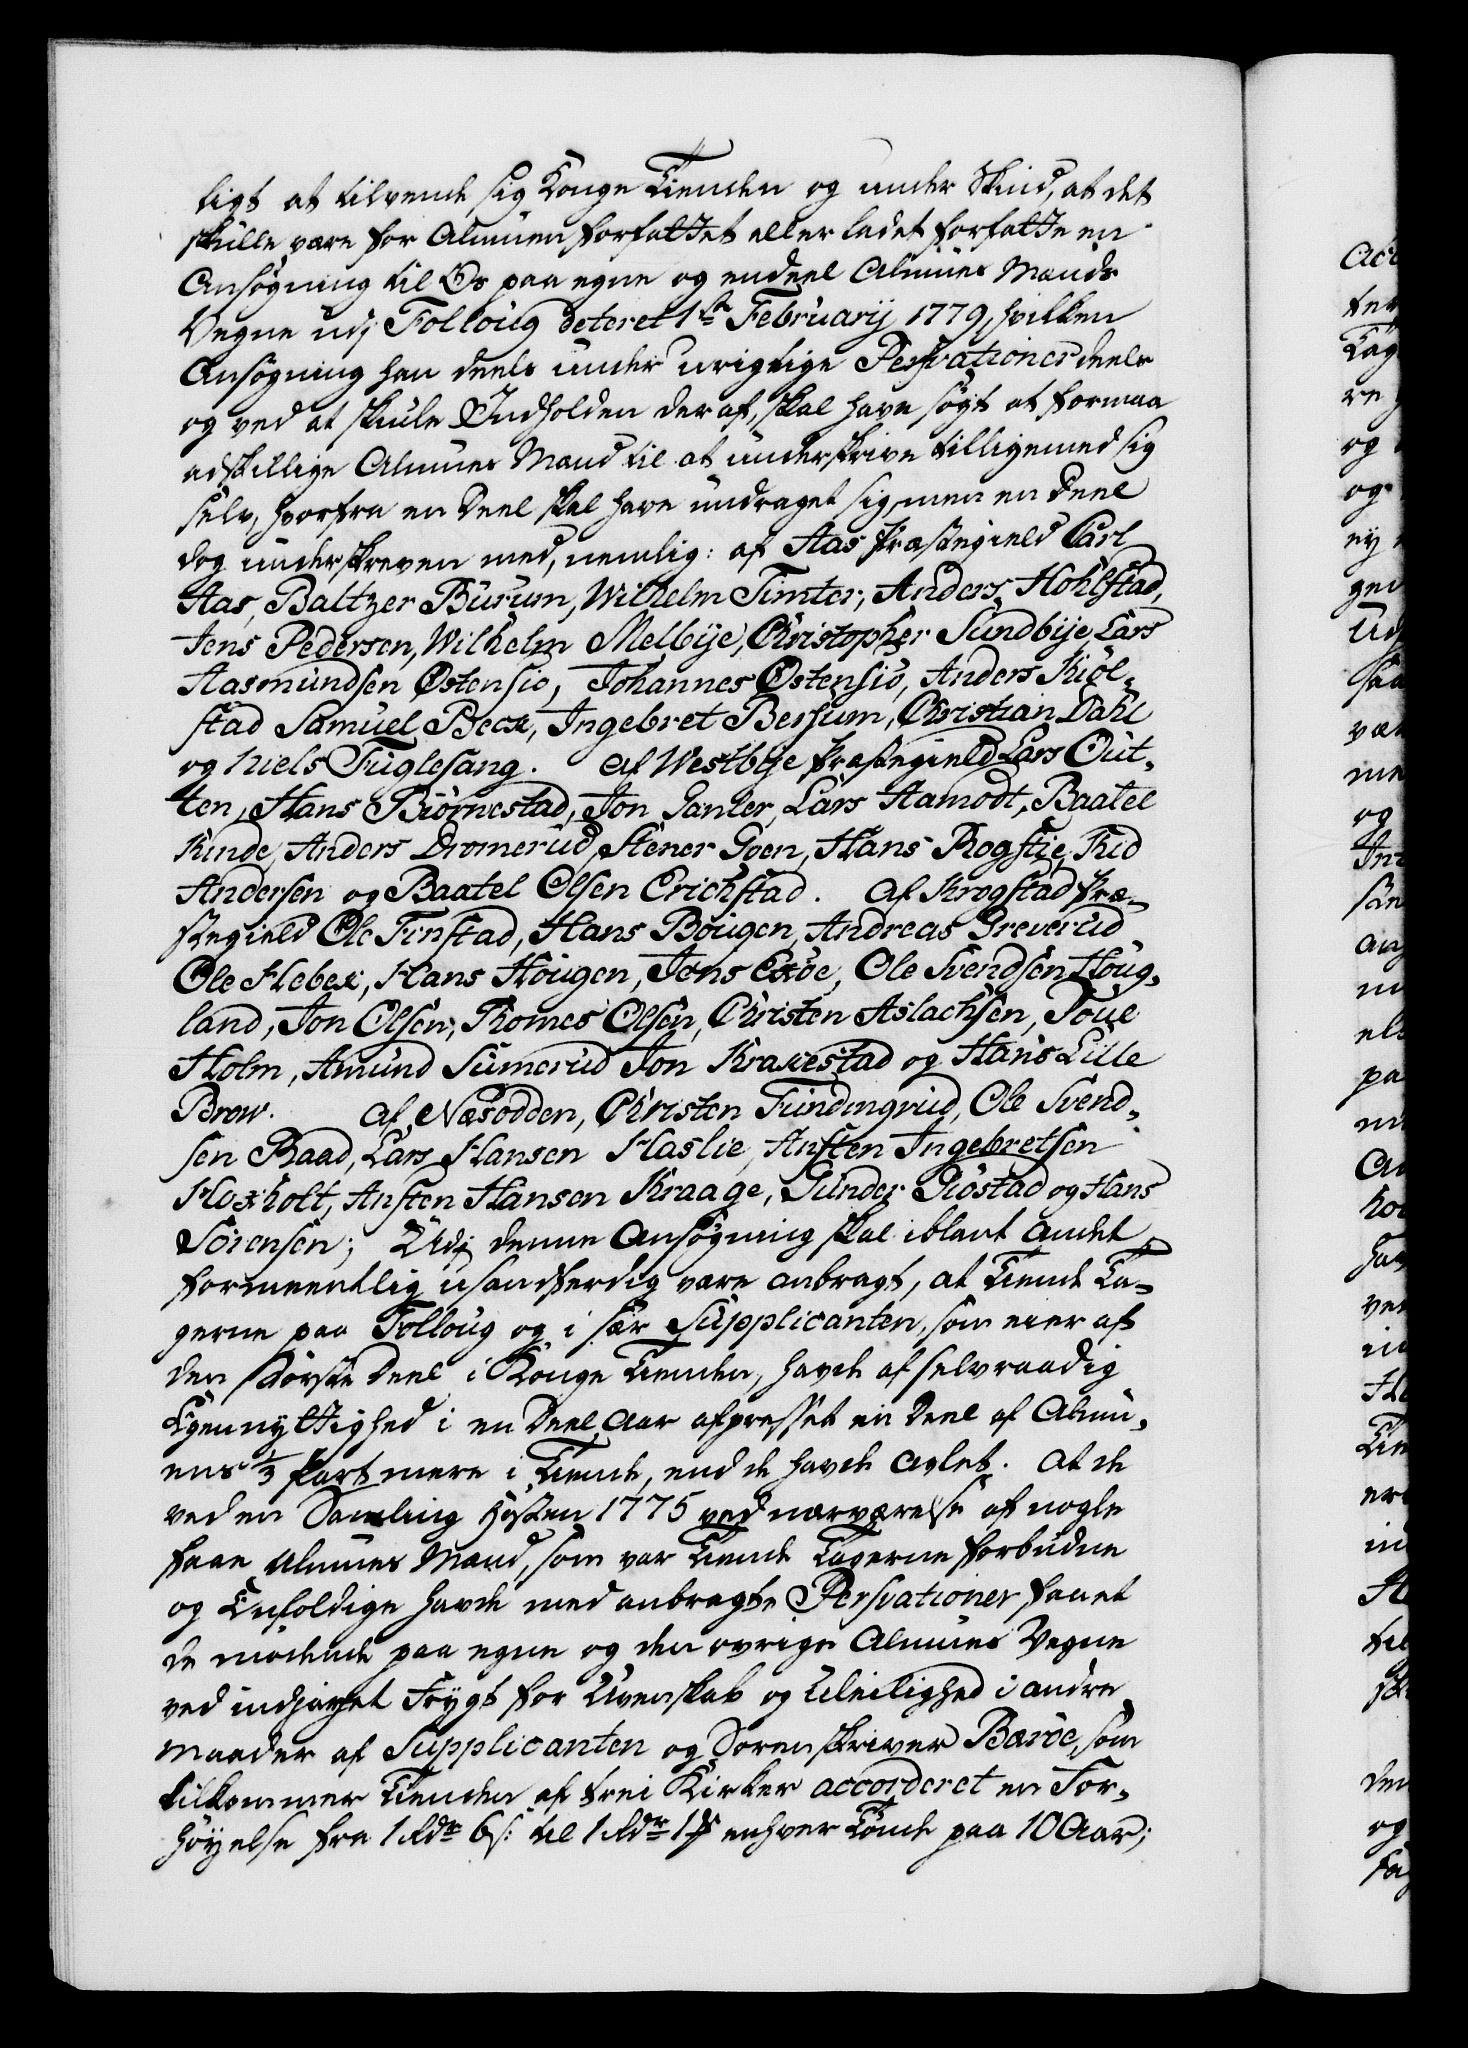 ligt at tilvende sig Konge Tienden og under Skind, at det
skulle være for Almuen forfattet eller ladet forfatte en
Ansøgning til Os paa egne og endeel Almues Mænds
Vegne udj Folloug dateret 1ste Februarij 1779, hvilken
Ansøgning han deels under urigtige Persvationer deels
og ved at skiule Indholden deraf, skal have søgt at formaa
adskillige Almues Mænd til at underskrive tilligemed sig
selv, hvorfra en Deel skal have undraget sig, men en Deel
dog underskreven med, nemlig: af Aas Præstegield Carl
Aas, Baltzer Burum, Wilhelm Timter, Anders Hohlstad,
Jens Pedersen, Wilhelm Melbije, Christopher Sundbije Lars
Aasmundsen Østensiø, Johannes Østensiø, Anders Kiøl-
stad Samuel Beck, Ingebret Bersum, Christian Dahl
og Niels Fuglesang. Af Westbye Præstegield Lars Out-
ten, Hans Biørnestad, Jon Ganler, Lars Aamodt, Baatel
Kinde, Anders Dromerud, Stener Goen, Hans Rogstie, Kid
Andersen og Baatel Olsen Erichstad. Af Krogstad Præ-
stegield Ole Finstad, Hans Bougen, Andreas Greverud
Ole Hebek, Hans Hougen, Jens Exøe, Ole Svendsen Houg-
land, Jon Olsen, Thomes Olsen, Christen Aslachsen, Poul
Holm, Amund Sumerud Jon Krakestad og Hans Lille
Brow. Af Næsodden, Christen Fundingrud, Ole Svend-
sen Raad, Lars Hansen Haslie, Ansten Ingebretsen
Hoxholt, Ansten Hansen Kraage, Gunder Giøstad og Hans
Sørensen; Udj denne Ansøgning skal iblant andet
formeentlig usandferdig være anbragt, at Tiende Ta-
gerne paa Folloug og i sær Supplicanten, som eier af
den største Deel i Konge Tienden, havde af selvraadig
Egennyttighed i en Deel Aar afpresset en Deel af Almu-
ens 1/3 Part mere i Tiende, end de havde avlet. At de
ved en Samling Høsten 1775 ved nærværelse af nogle
faae Almues Mænd, som var Tiende Tagerne forbudne
og Eenfoldige havde med anbragte Persvationer faaet
de mødende paa egne og den øvrige Almues Vegne
ved indjaget Frygt for Uvenskab og Uleilighed i andre
Maader af Supplicanten og Sorenskriver Bærøe, som
tilkommer Tienden af trei Kirker accorderet en For-
høyelse fra 1 Rdr 6 s: til 1 Rdr enhver Tønde paa 10 Aar;